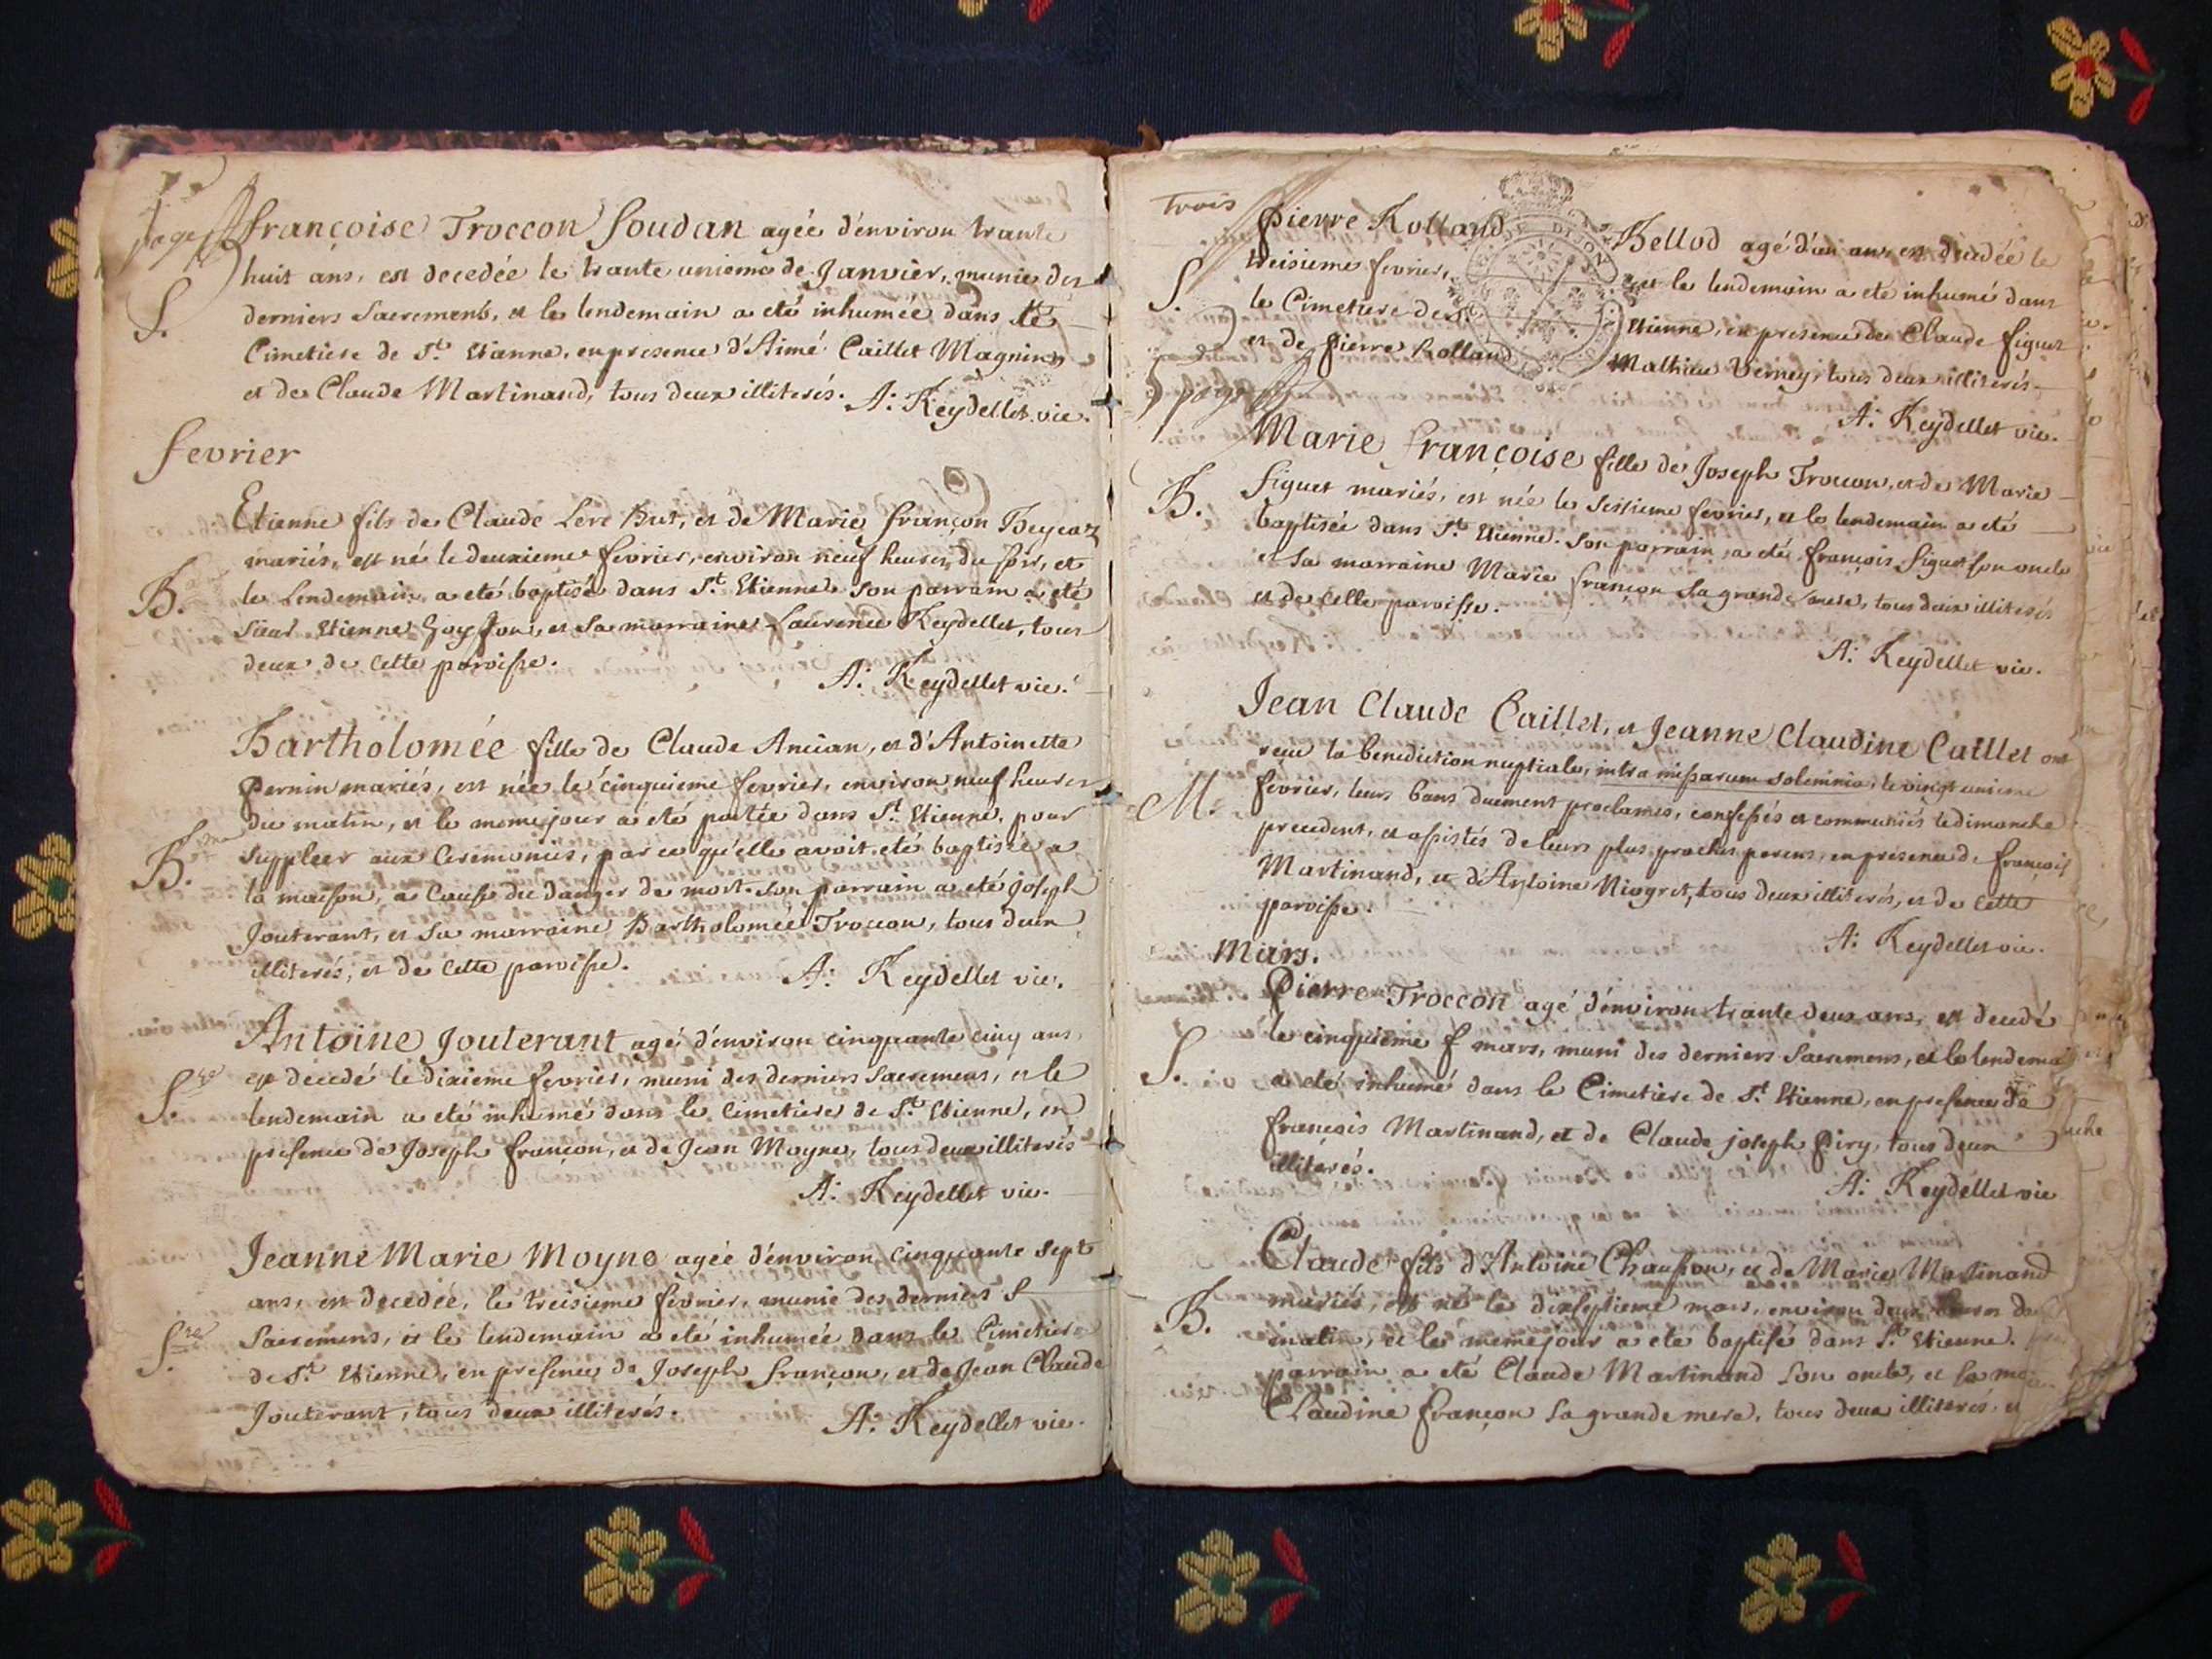 page
françoise Troccon Soudan agée d'environ trante
huit ans, est decedée le trante unieme de Janvier, munie des
S.
derniers Sacremens, et le lendemain a eté inhumée dans le
Cimetiere de St. Etienne, en presence d'Aimé Caillet Magnin
et de Claude Martinand, tous deux illiterés. A: Reydellet vic.
fevrier
Etienne fils de Claude But, et de Marie françon
mariés, est né le deuxieme fevrier, environ neuf heures du soir, et
B.
le Lendemain a eté baptisé dans St. Etienne. Son parrain a eté
Sieur Etienne et sa marraine Laurence Reydellet, tous
deux de cette paroisse.
A: Reydellet vic.
Bartholomée fille de Claude Ancian, et d'Antoinette
Pernin mariés, est née le cinquieme fevrier, environ neuf heures
du matin, et le meme jour a eté portée dans St. Etienne, pour
B.
suppleer aux Ceremonies, par ce qu'elle avoit eté baptisée a
la maison, a cause du danger de mort. Son parrain a eté joseph
Jouterant, et sa marraine Bartholomée Troccon, tous deux
illiterés, et de cette paroisse.
A: Reydellet vic.
Antoine Jouterant agé d'environ cinquante cinq ans
est decedé le dixieme fevrier, muni des derniers Sacremens, et le
S.
lendemain a eté inhumé dans le Cimetiere de St. Etienne, en
presence de Joseph françon, et de Jean Moyne, tous deux illiterés
A: Reydellet vic.
Jeanne Marie Moyne agée d'environ cinquante sept
ans, est decedée, le treisieme fevrier, munie des derniers S
S.
Sacremens, et le lendemain a eté inhumée dans le Cimetiere
de St. Etienne, en presence de Joseph françon, et de Jean Claude
Jouterant, tous deux illiterés.
A: Reydellet vic.
trois
Pierre Rolland Bellod agé d'un an, est decedée le
treisieme fevrier, et le lendemain a eté inhumé dans
S.
le Cimetiere de St. Etienne, en presence de Claude figuet
et de pierre Rolland Mathieu Verney, tous deux illiterés.
page
A: Reydellet vic.
Marie françoise fille de Joseph Troccon, et de Marie
B.
figuet mariés, est née le sessieme fevrier, et le lendemain a eté
baptisée dans St. Etienne. Son parrain a eté françois figuet son oncle
et sa marraine Marie françon sa grand mere, tous deux illiterés
et de cette paroisse.
A: Reydellet vic.
Jean Claude Caillet, et Jeanne Claudine Caillet ont
reçu la benediction nuptiale, intra missarum solemnia, le vingt unieme
M.
fevrier, leurs bans duement proclamés, confessés et communiés le dimanche
precedent, et assistés de leurs plus proches parens, en presence de françois
Martinand, et d'Antoine Niogret, tous deux illiterés, et de cette
paroisse.
A: Reydellet vic.
Mars.
Pierre Troccon agé d'environ trante deux ans, est decedé
S.
le cinquieme f mars, muni des derniers Sacremens, et le lendemain
a eté inhumé dans le Cimetiere de St. Etienne, en presence de
françois Martinand, et de Claude joseph Piry, tous deux
illiterés.
A: Reydellet vic
Claude fils d'Antoine Chausson, et de Marie Martinand
B.
mariés, est né le dixseptieme mars, environ deux heures du
matin, et le meme jour a eté baptisé dans St. Etienne.
parrain a eté Claude Martinand son oncle, et sa
Claudine françon sa grande mere, tous deux illiterés, et